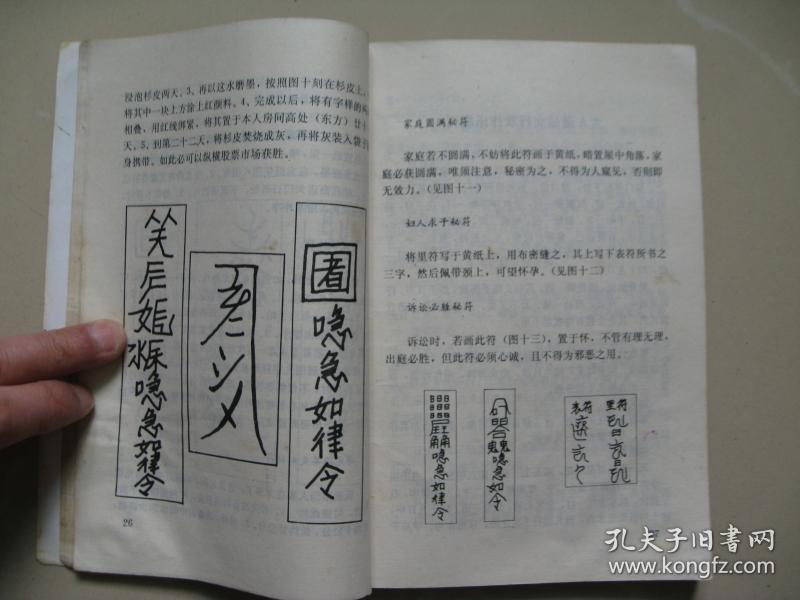 浸泡杉皮两天、3、再以这水磨墨，按照图十刻在杉皮上，
将其中一块上方涂上红颜料。4、完成以后，将有字样的
相叠，用红线绑紧，将其置于本人房间高处（东方）廿
天、5、到第二十二天，将杉皮焚烧成灰，再将灰装入袋
身携带。如此必可以纵横股票市场获胜。
唸急如律令
唸急如律令
26
家庭圆满秘符
家庭若不圆满，不妨将此符画于黄纸，暗置屋中角落，家
庭必获圆满，唯须注意，秘密为之，不得为人窥见，否则即
无效力。（见图十一）
妇人求子秘符
将里符写于黄纸上，用布密缝之，其上写下表符所书之
三字，然后佩带颈上，可望怀孕。（见图十二）
诉讼必胜秘符
诉讼时，若画此符（图十三），置于怀，不管有理无理，
出庭必胜，但此符必须心诚，且不得为邪恶之用。
唸急如律令
唸急如令
表符
里符
孔夫子旧书网
www.kongfz.com